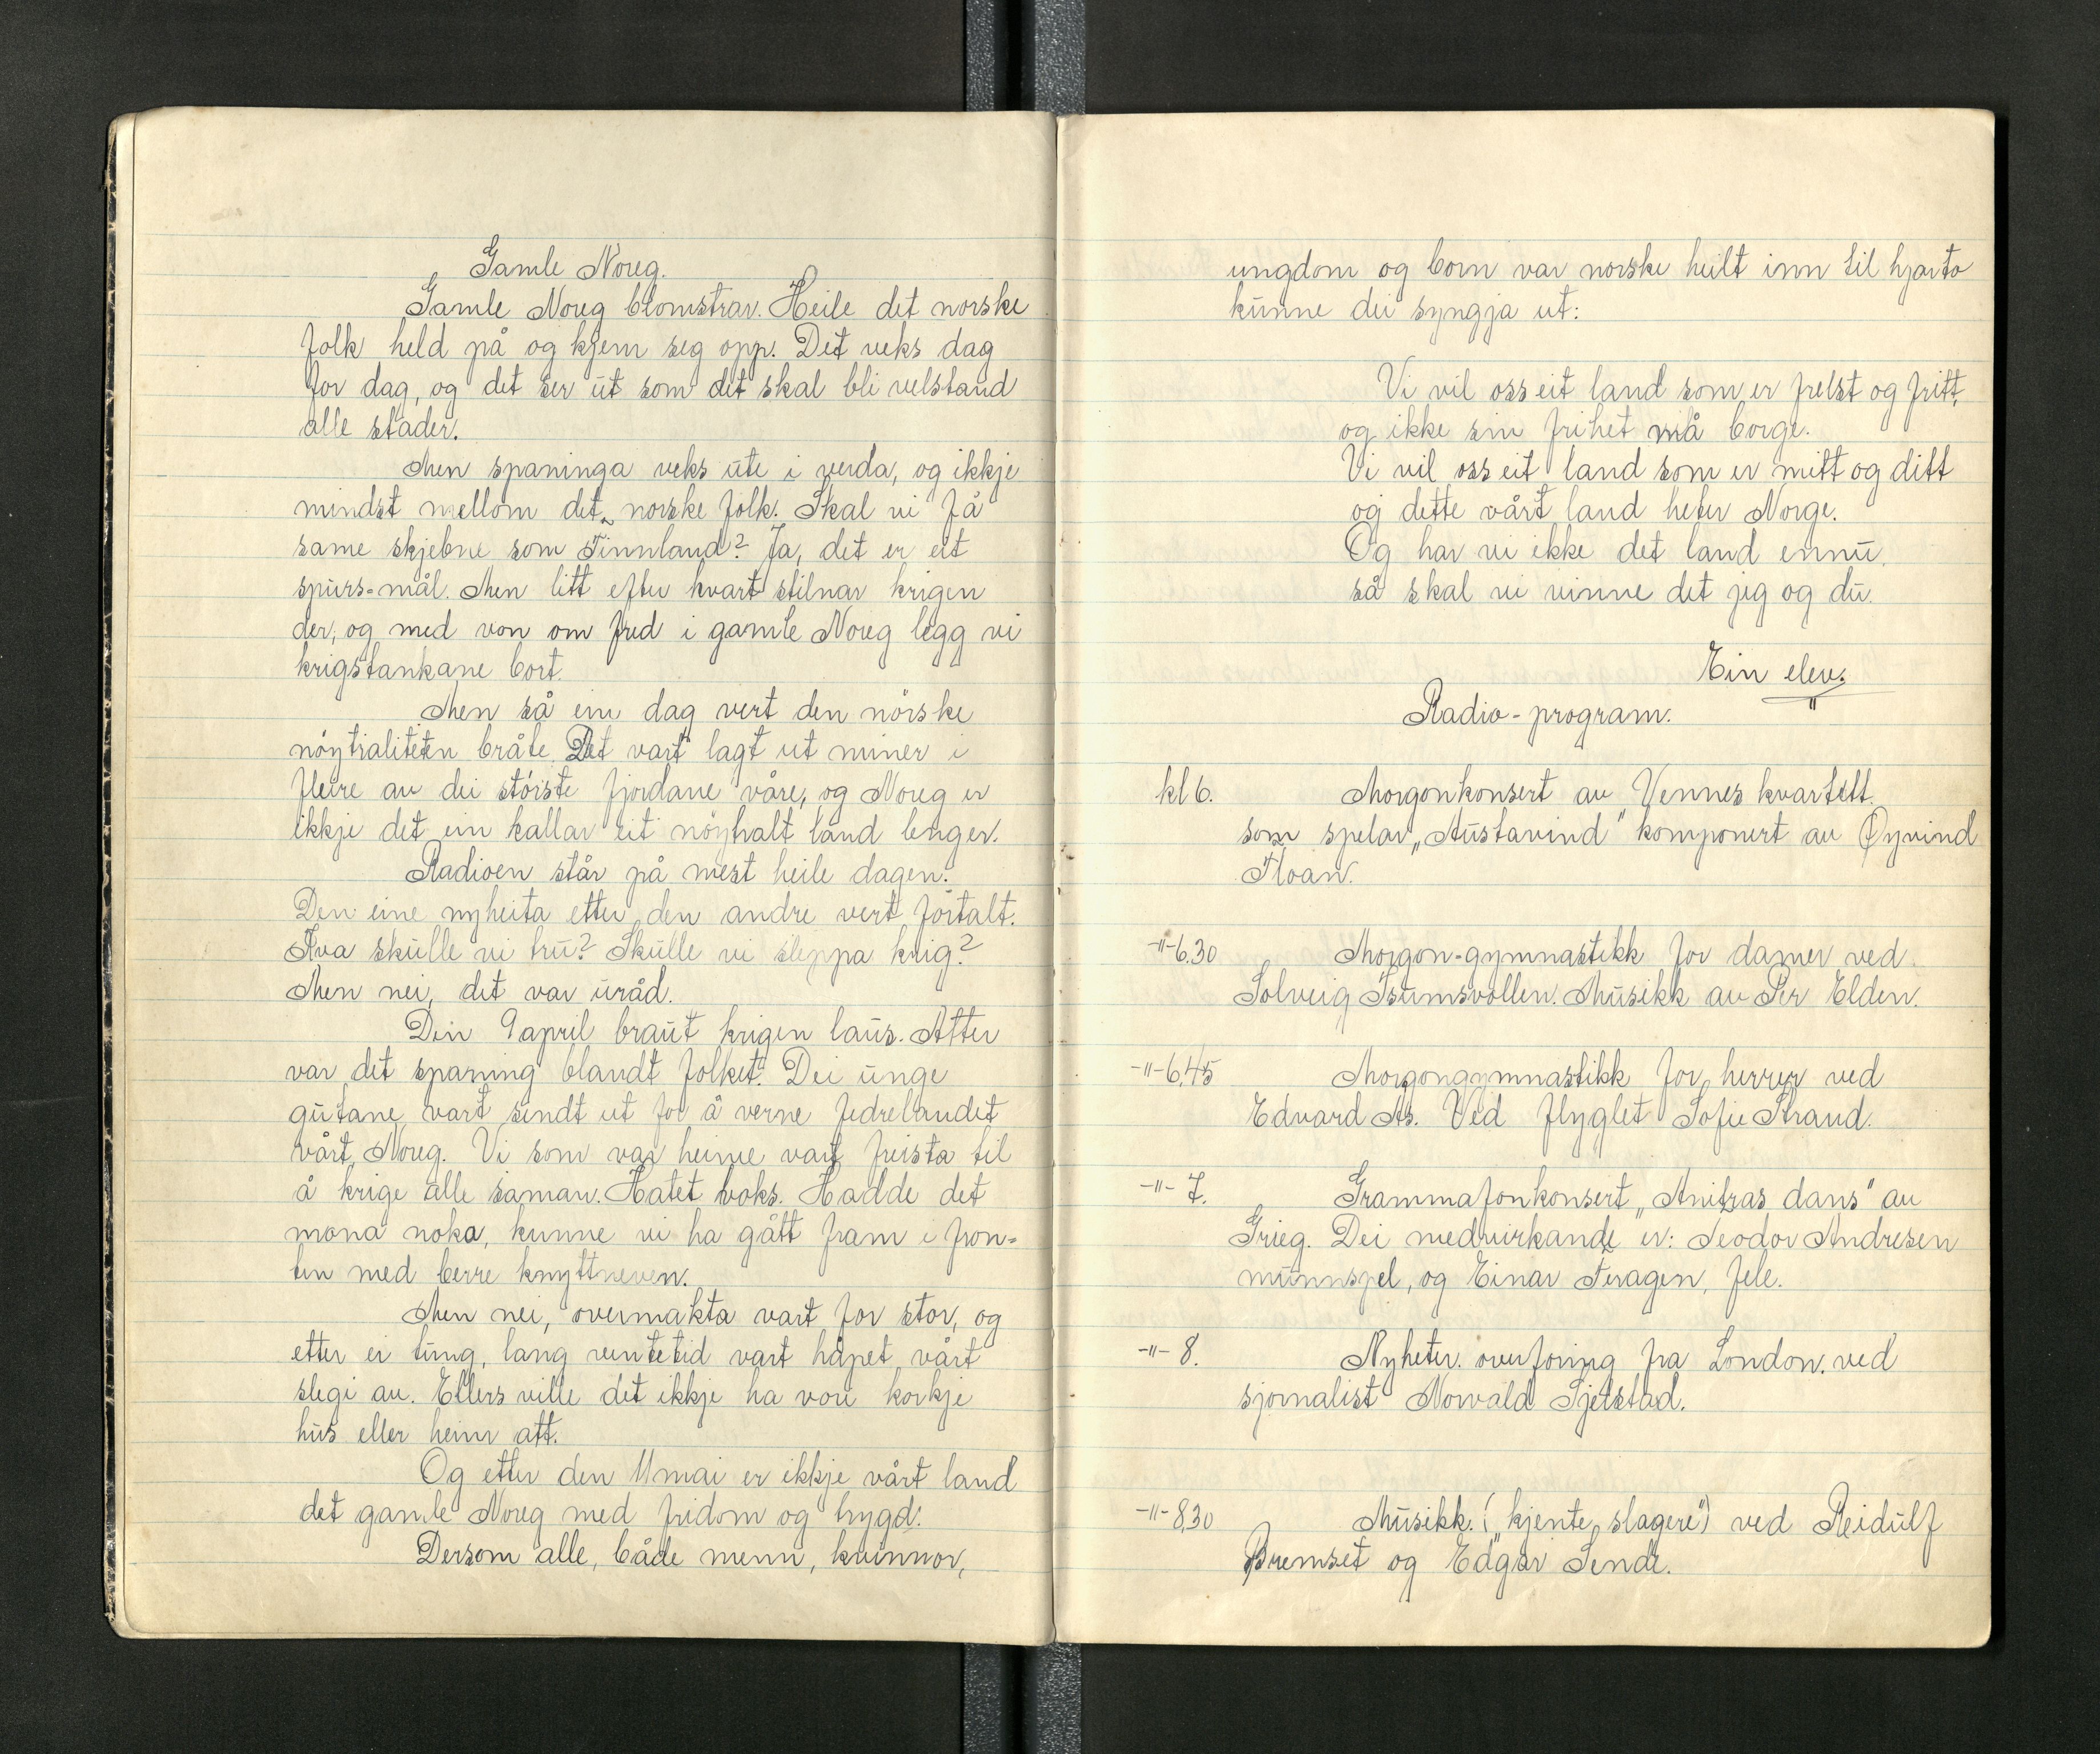 Gamle Noreg.
Gamle Noreg blomstrar. Heile det norske
folk held på og kjem seg opp. Det veks dag
for dag, og det ser ut som det skal bli velstand
alle stader.
Men spaninga veks ute i verda, og ikkje
mindst mellom det norske folk. Skal vi få
same skjebne som Finnland? Ja, det er eit
spurs-mål. Men litt efter kvart stilnar krigen
der, og med von om fred i gamle Noreg legg vi
krigstankane bort.
Men så ein dag vert den norske
nöytraliteten bråte. Det vart lagt ut miner i
fleire av dei störste fjordane våre, og Noreg er
ikkje det ein kallar eit nöytralt land lenger.
Radioen står på mest heile dagen.
Den eine nyheita etter den andre vert fortalt.
Kva skulle vi tru? Skulle vi sleppa krig?
Men nei, det var uråd.
Den 9 april braut krigen laus. Atter
var det spaning blandt folket. Dei unge
gutane vart sendt ut for å verne fedrelandet
vårt, Noreg. Vi som var heime vart freista til
å krige alle saman. Hatet voks. Hadde det
mona noka, kunne vi ha gått fram i fron-
ten med berre knyttneven.
Men nei, overmakta vart for stor, og
etter ei tung, lang ventetid vart håpet vårt
slegi av. Ellers ville det ikkje ha vore korkje
hus eller heim att.
Og etter den 11 mai er ikkje vårt land
det gamle Noreg med fridom og trygd.
Dersom alle, både menn, kvinnor,
ungdom og born var norske heilt inn til hjarto
kunne dei syngja ut:
Vi vil oss eit land som er frelst og fritt,
og ikke sin frihet må borge.
Vi vil oss eit land som er mitt og ditt
og dette vårt land heter Norge.
Og har vi ikke det land ennu,
så skal vi vinne det jeg og du.
Ein elev.
Radio-program.
kl 6. Morgonkonsert av Vennes kvartett.
som spelar „Austavind" komponert av Öyvind
Floan.
-"-6.30 Morgon-gymnastikk for damer ved
Solveig Tsumsvollen. Musikk av Per Elden.
-"-6.45 Morgongymnastikk for herrer ved
Edvard As. Ved flyglet Sofie Strand.
-"- 7. Grammafonkonsert „Anitras dans" av
Grieg. Dei medvirkande er: Teodor Andresen
munnspel, og Einar Teragen, fele.
-"- 8. Nyheter. overforing fra London. ved
sjornalist Norvald Tjelstad.
-"-8,30 Musikk. („kjente slagere") ved Reidulf
Bremset og Edgar Sende.